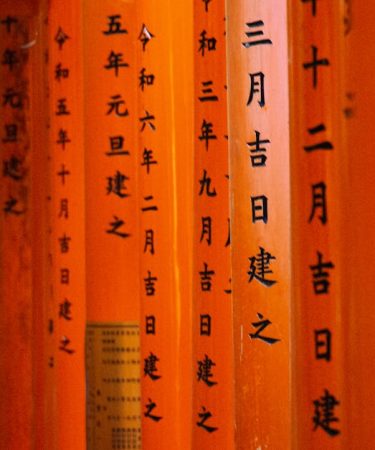 十二月吉日建
三月吉日建之
和三年九月吉日建之
令和六年二月吉日建之
五年元旦建之
令和五年十月吉日建之
十年元旦建之